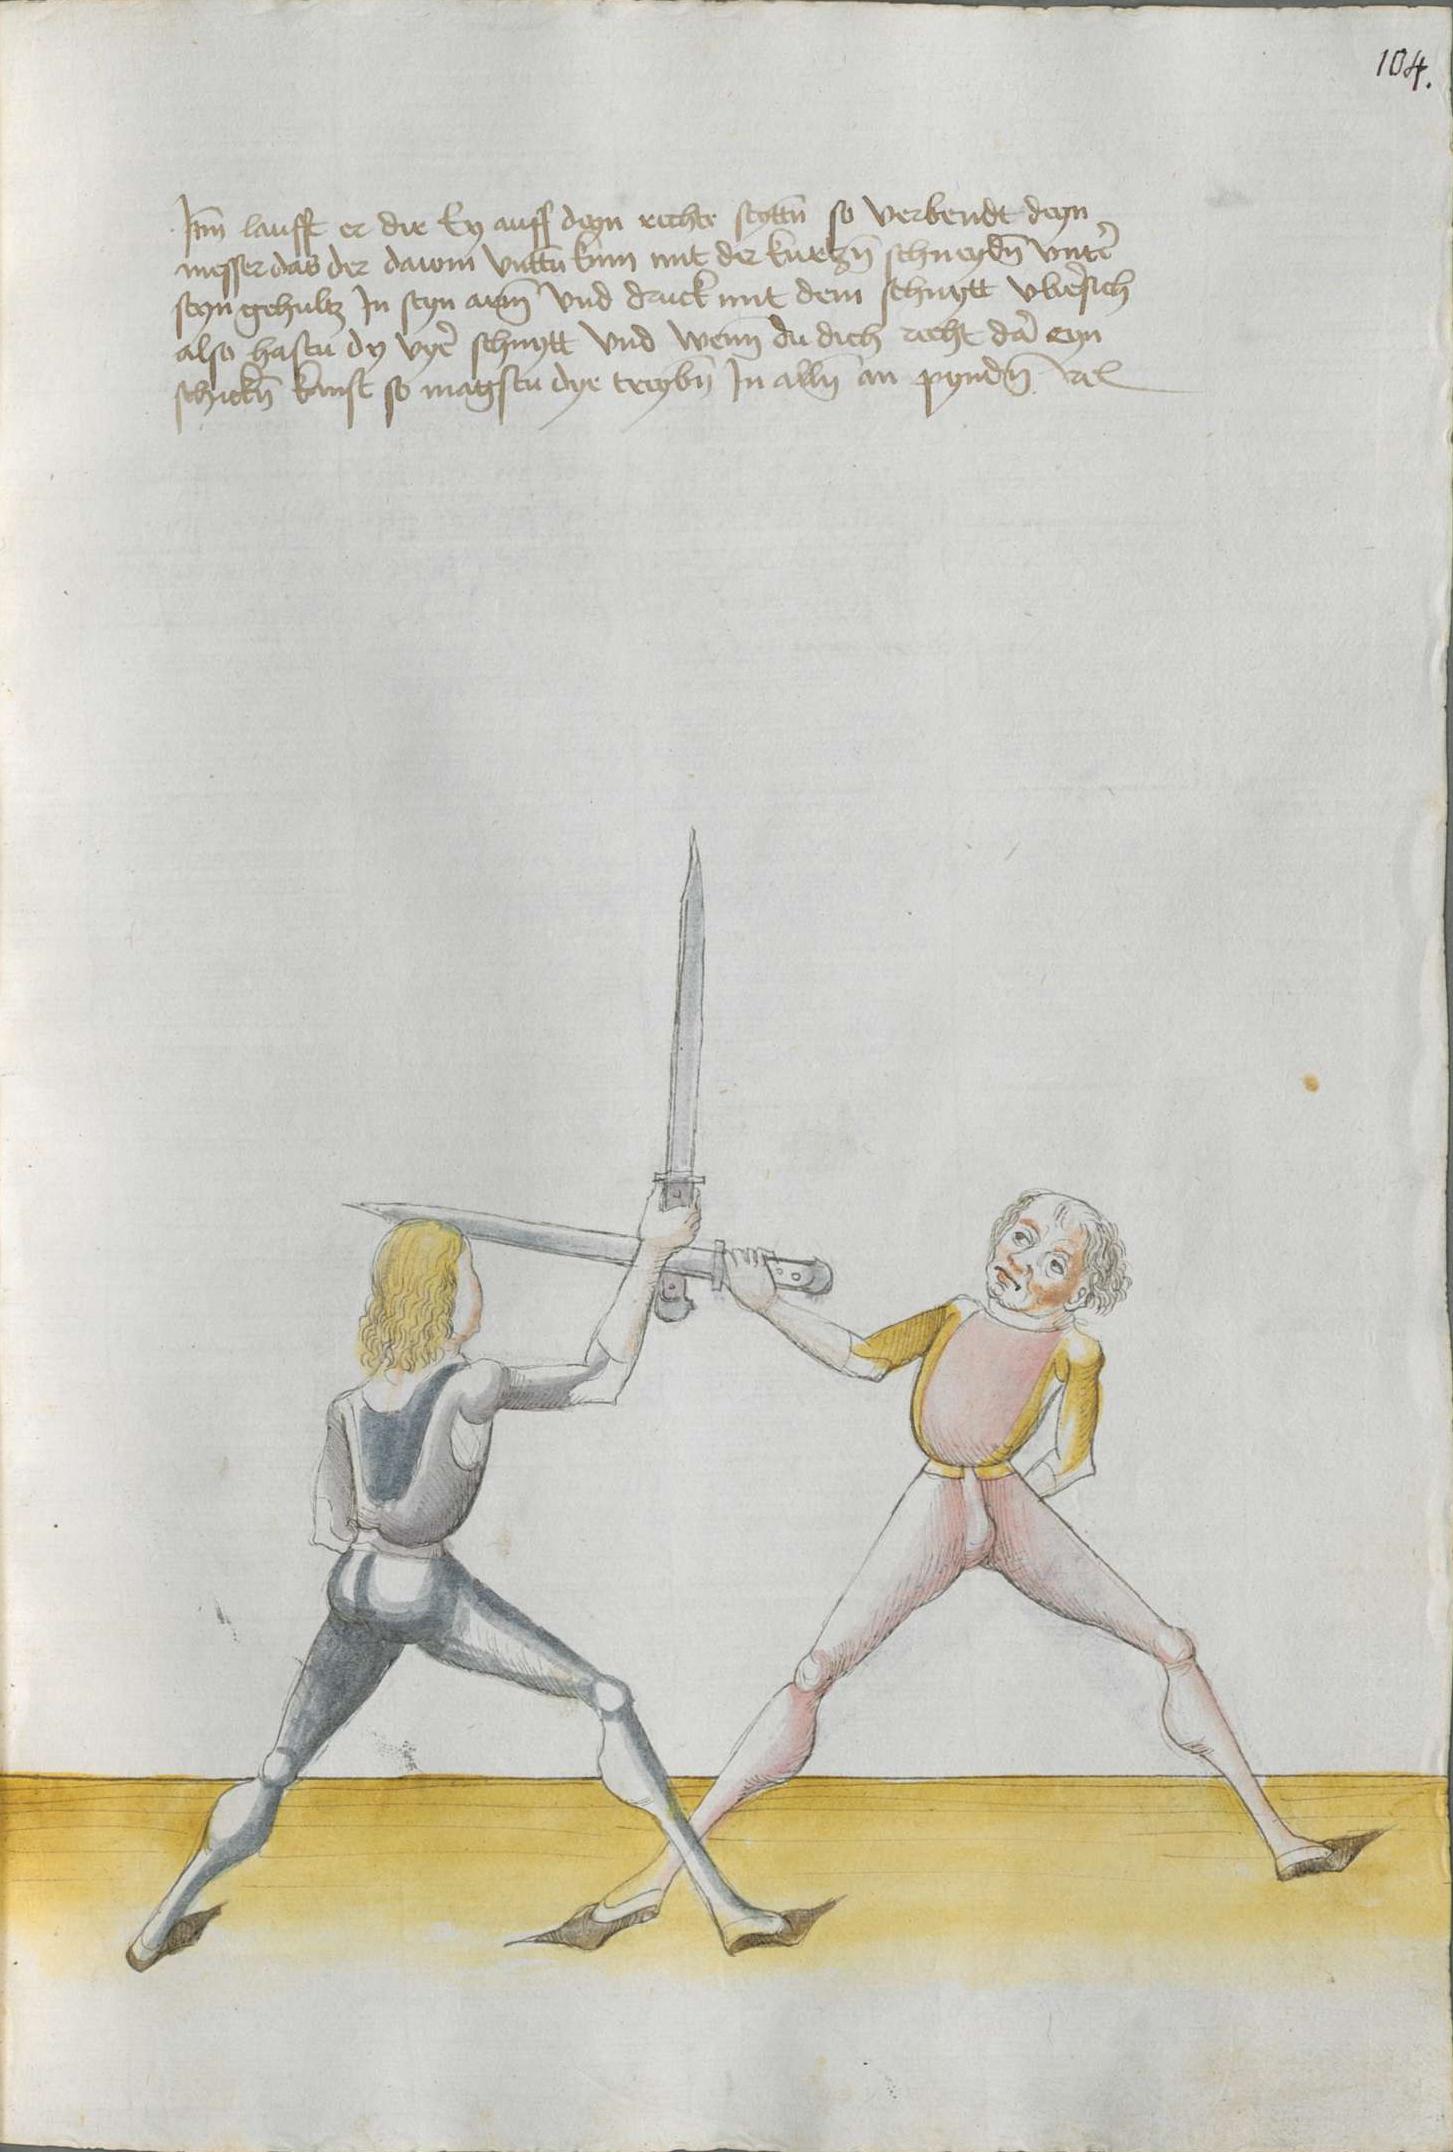 104.
Itm laufft er dir Ey auff deyn rechte seyttñ so verbendt deyn
messer das der dawm vnttñ kum mit der kurczñ schneydñ vnter̃
seyn gehultz In seyn arm̃ vnd druck mit dem schnytt vber̃sich
also hastu dy vyer̃ schnytt vnd wenñ du dich recht dar̃ eyn
schickñ kanst so magstu dye treybñ In allñ an pyndñ